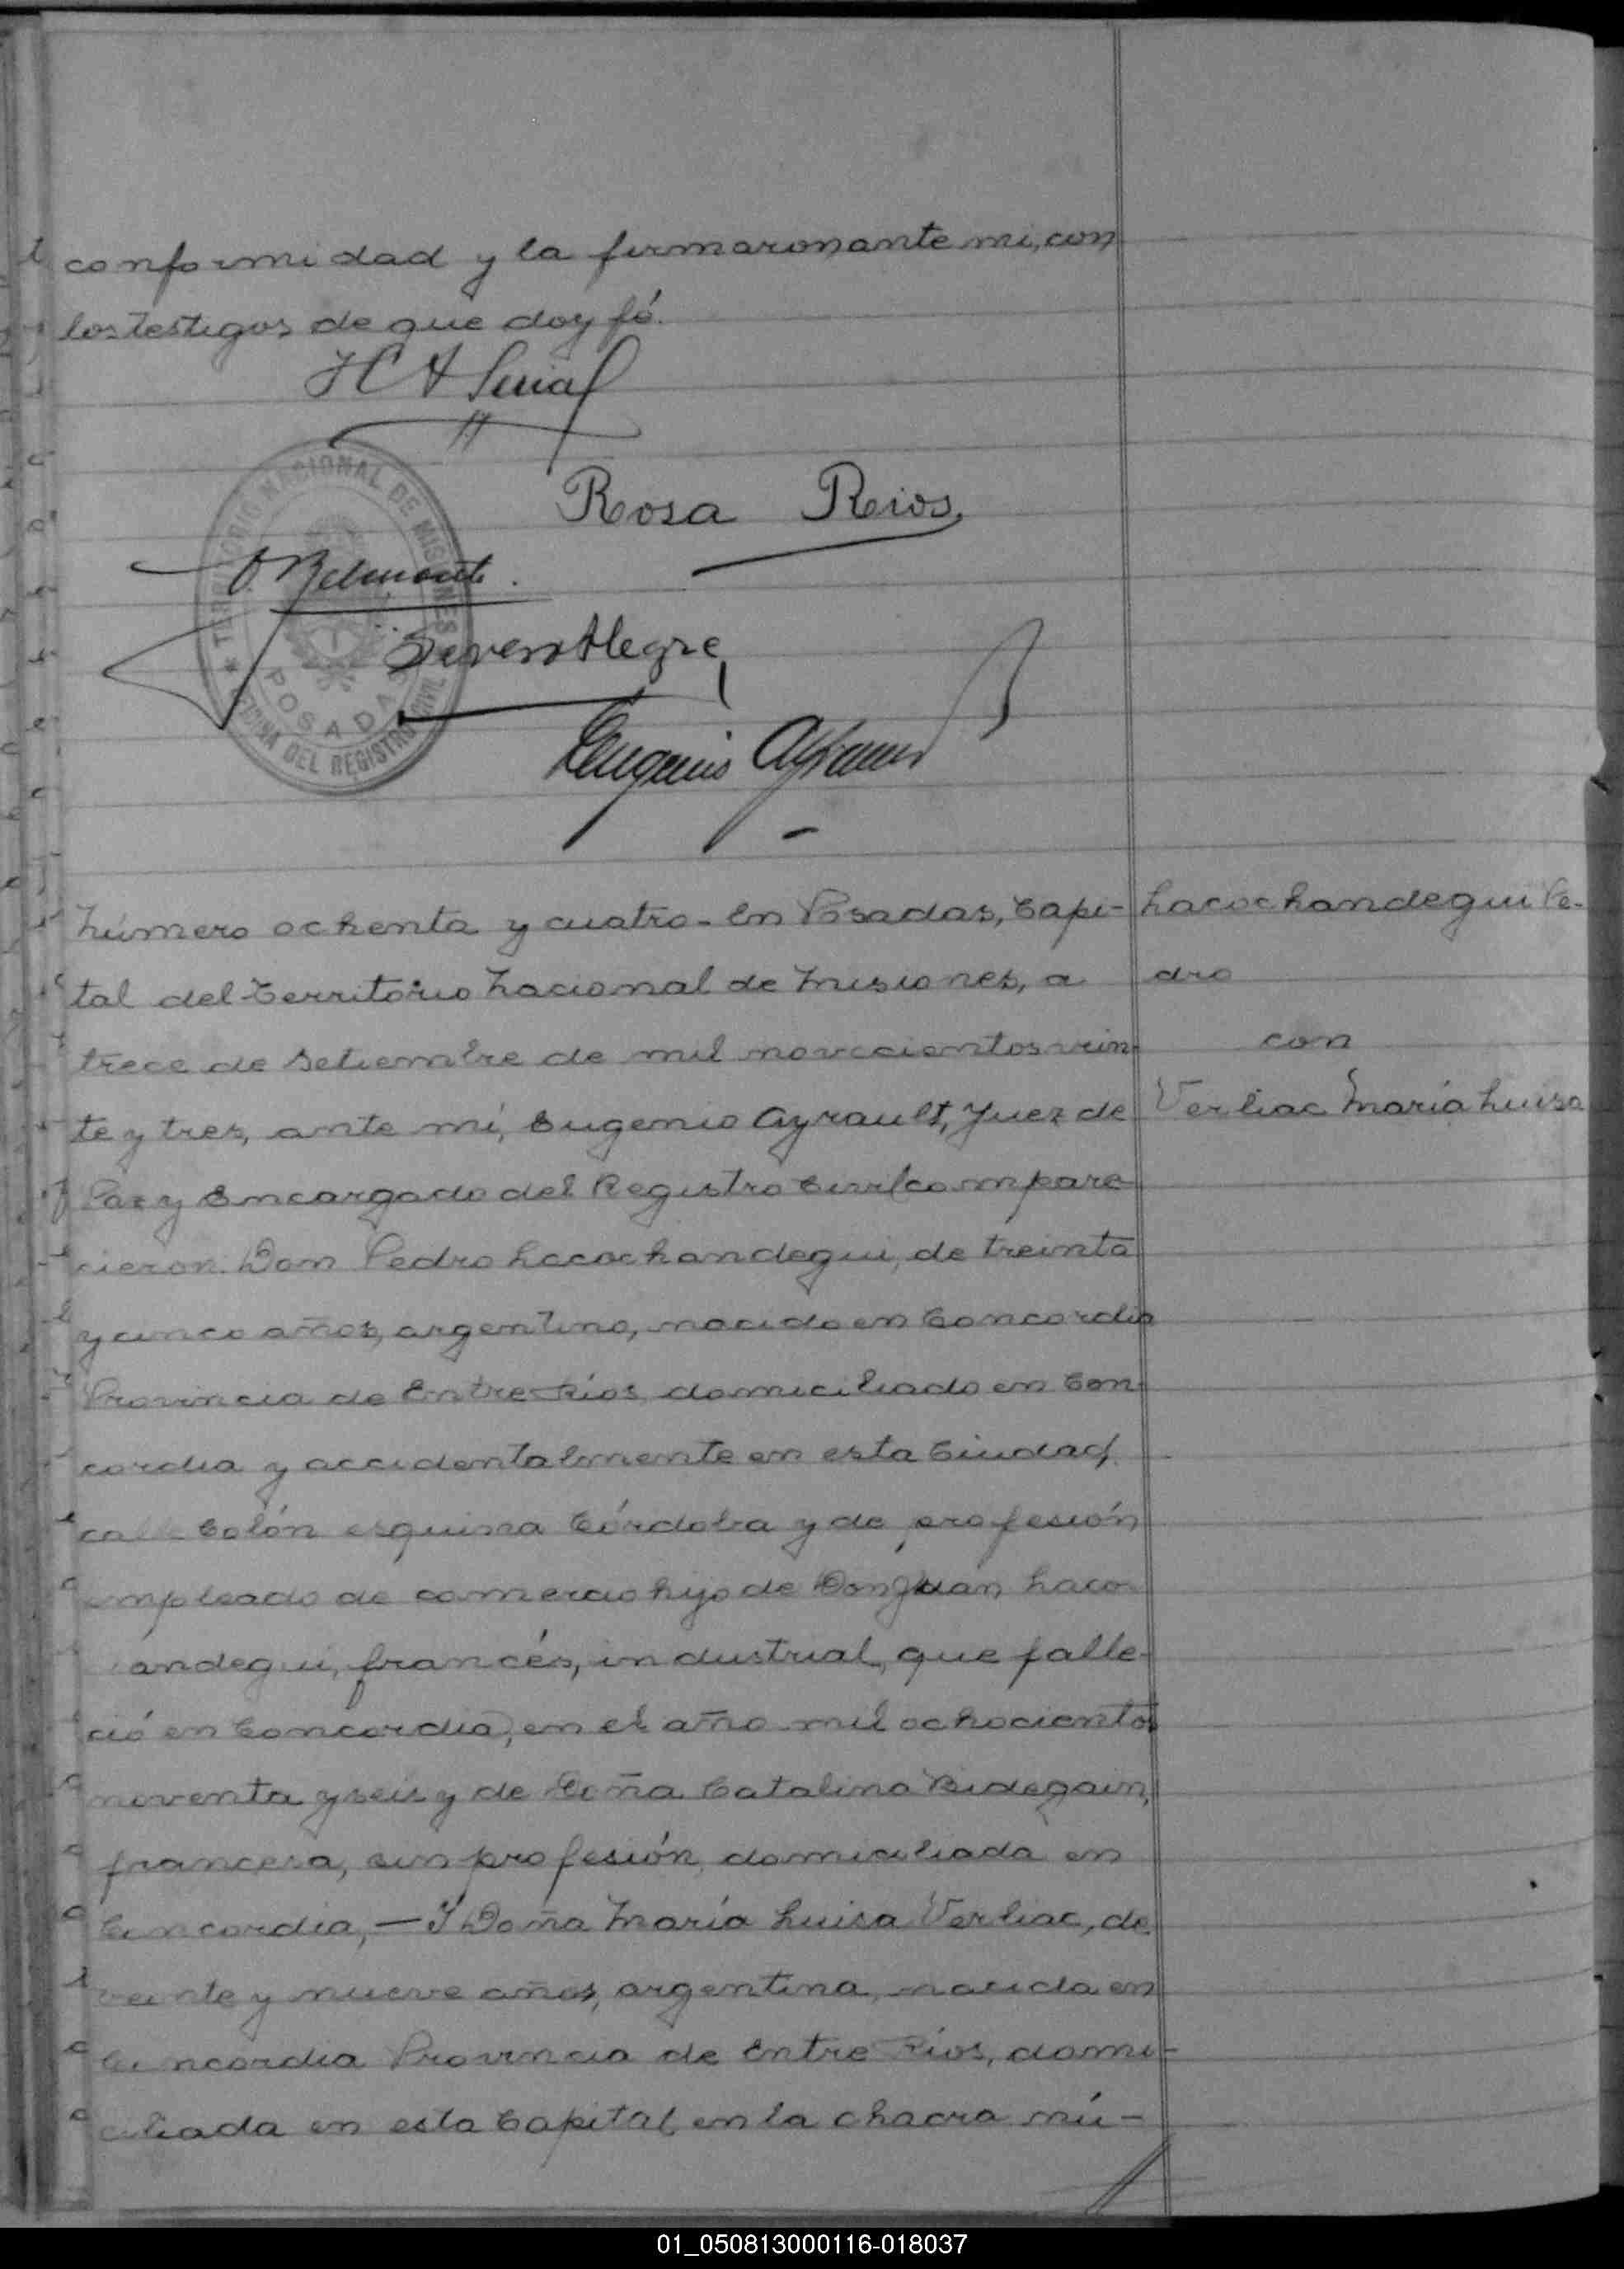 conformidad y la firmaron ante mi, con
los testigos de que doy fé.
Rosa Rios
O Belmonte.
Severo Alegre
Eugenio Ayrault
TERRITORIO NACIONAL DE MISIONES
POSADAS
OFICINA DEL REGISTRO CIVIL
Número ochenta y cuatro - En Posadas, Capi-
tal del Territorio Nacional de Misiones, a
trece de Setiembre de mil novecientos vein-
te y tres, ante mí, Eugenio Ayrault, Juez de
Paz y Encargado del Registro Civil compare-
cieron: Don Pedro Lacochandegui, de treinta
y cinco años, argentino, nacido en Concordia
Provincia de Entre Ríos, domiciliado en Con-
cordia y accidentalmente en esta Ciudad,
calle Colón esquina Córdoba y de profesión
empleado de comercio hijo de Don Juan Laco-
andegui, francés, industrial, que falle-
ció en Concordia, en el año mil ochocientos
noventa y seis y de Doña Catalina Bidegain,
francesa, sin profesión, domiciliada en
Concordia, — Y Doña María Luisa Verliac, de
veinte y nueve años, argentina, nacida en
Concordia Provincia de Entre Ríos, domi-
ciliada en esta Capital, en la chacra nú-
Lacochandegui Pe-
dro
con
Verliac María Luisa
01_050813000116-018037